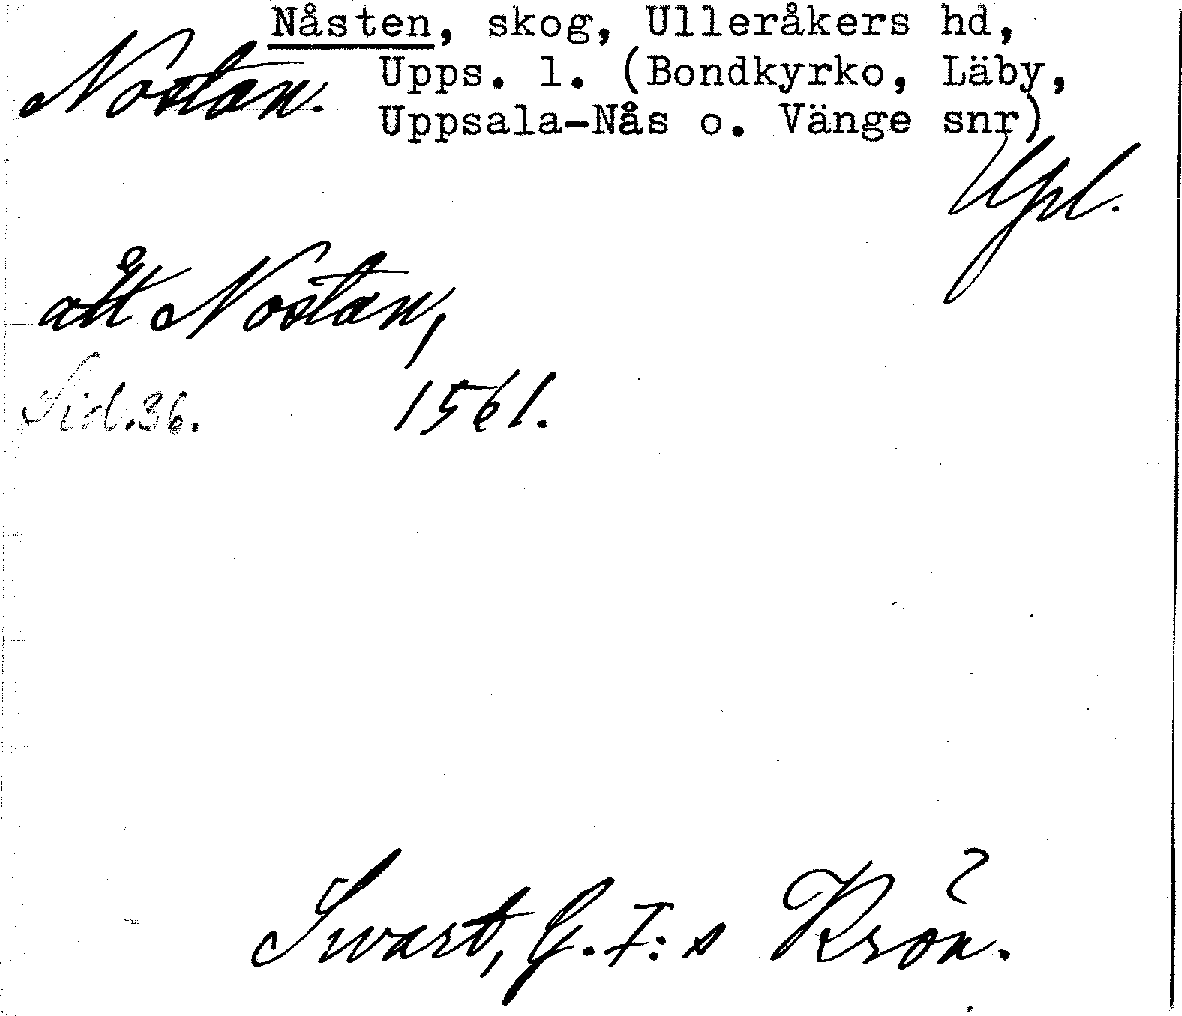 Nåsten, skog, Ulleråkers hd,
Nostan. Upps. l. (Bondkyrko, Läby,
Uppsala-Nås o. Vänge snr)
Upl.
ått Nostan,
Sid. 36. 1561.
Swart, G. I:s Krön.